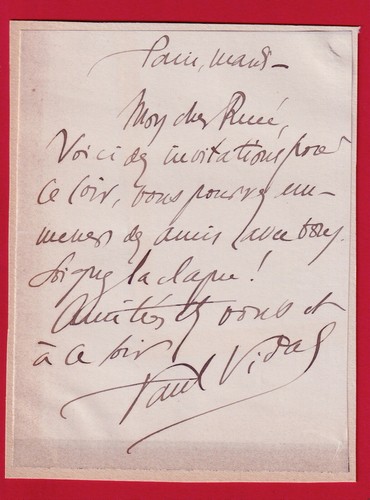 Paris, mardi
Mon cher René,
Voici des invitations pour
ce soir, vous pourrez em-
mener des amis avec vous.
Soignez la claque !
Amitiés à vous et
à ce soir
Paul Vidal